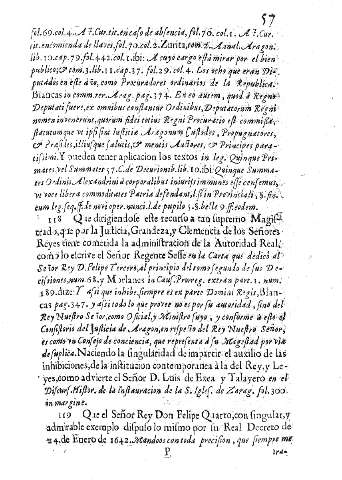 57
fol.69.col.4. A ?. Cur.tit. en caso de absencia, fol.76.col.1. A ?. Cur.
tit. encomienda de llaves, fol.70.col.2. Zurita, tom. Annal. Aragon.
lib.10.cap.79.fol.442.col.1. ibi: A cuyo cargo està mirar por el bien
publico; & tom.3.lib.11.cap.37.fol.29.col.4. Los ocho que eran Di-
putados en este año, como Procuradores ordinarios de la Republica.
Blancas in comm.rer. Arag. pag.374. En eo autem, quod à Regni
Deputati fuere, ex omnibus constantur Ordinibus, Deputatorum Regni
nomen invenerunt, quorum fidei totius Regni Procuratio est commissa,
stautumque vt ipsi sint Iustitiæ Aragonum Custodes, Propugnatores,
& Præsides, illiusque salutis, & mentis Auctores, & Principes para-
tissimi. Y pueden tener aplicacion los textos in leg. Quinque Pri-
mates vel Summates 57. C. de Decurionib. lib.10. ibi: Quinque Summa-
tes Ordinis Alexandrini corporalibus iniurijs immunes esse censemus,
vt voce libera commoditates Patriæ defendant, l. fin Provincialis, 8.
cum leg. seq. ff. de novi oper. nunci. l. de pupillo 5. §. belle 9. ff. eodem.
118 Que dirigiendose este recurso à tan supremo Magis-
trado, que por la Justicia, Grandeza, y Clemencia de los Señores
Reyes tiene cometida la administracion de la Autoridad Real,
como lo escrive el Señor Regente Sesse en la Carta que dedicò al
Señor Rey D. Felipe Tercero, al principio del tomo segundo de sus De-
cisiones, num.68. y Morlanes in Caus. Proreg. extran. par.1. num.
189. ibi: Y assi que inhibe, siempre es ex parte Domini Regis, Blan-
cas pag.347. y assi todo lo que provee no es por su autoridad, sino del
Rey Nuestro Señor, como Oficial, y Ministro suyo, y conforme à esto el
Consistorio del Justicia de Aragon, en respeto del Rey Nuestro Señor,
es como vn Consejo de conciencia, que representa à su Magestad por via
de suplica. Naciendo la singularidad de impartir el auxilio de las
inhibiciones, de la institucion contemporanea à la del Rey, y Le-
yes, como advierte el Señor D. Luis de Exea y Talayero en el
Discurs. Histor. de la Instauracion de la S. Igles. de Zarag. fol.300.
in margine.
119 Que el Señor Rey Don Felipe Quarto, con singular, y
admirable exemplo dispuso lo mismo por su Real Decreto de
24. de Enero de 1642. Mandoos con toda precision, que siempre me
P tra-